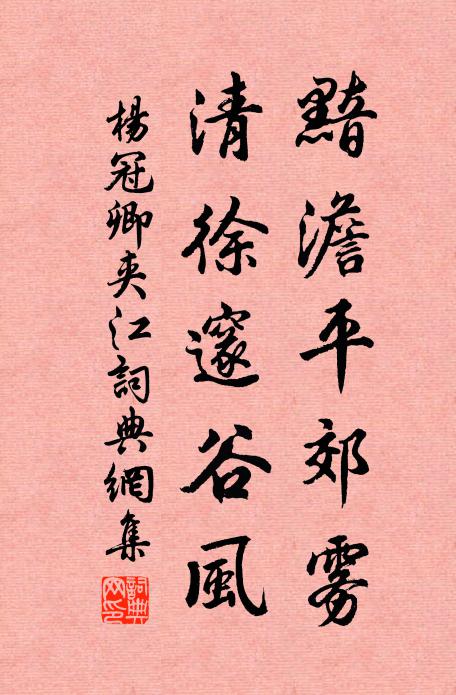 黯澹平郊雾
清徐邃谷風
楊冠卿夹江詞典網集
詞典网印